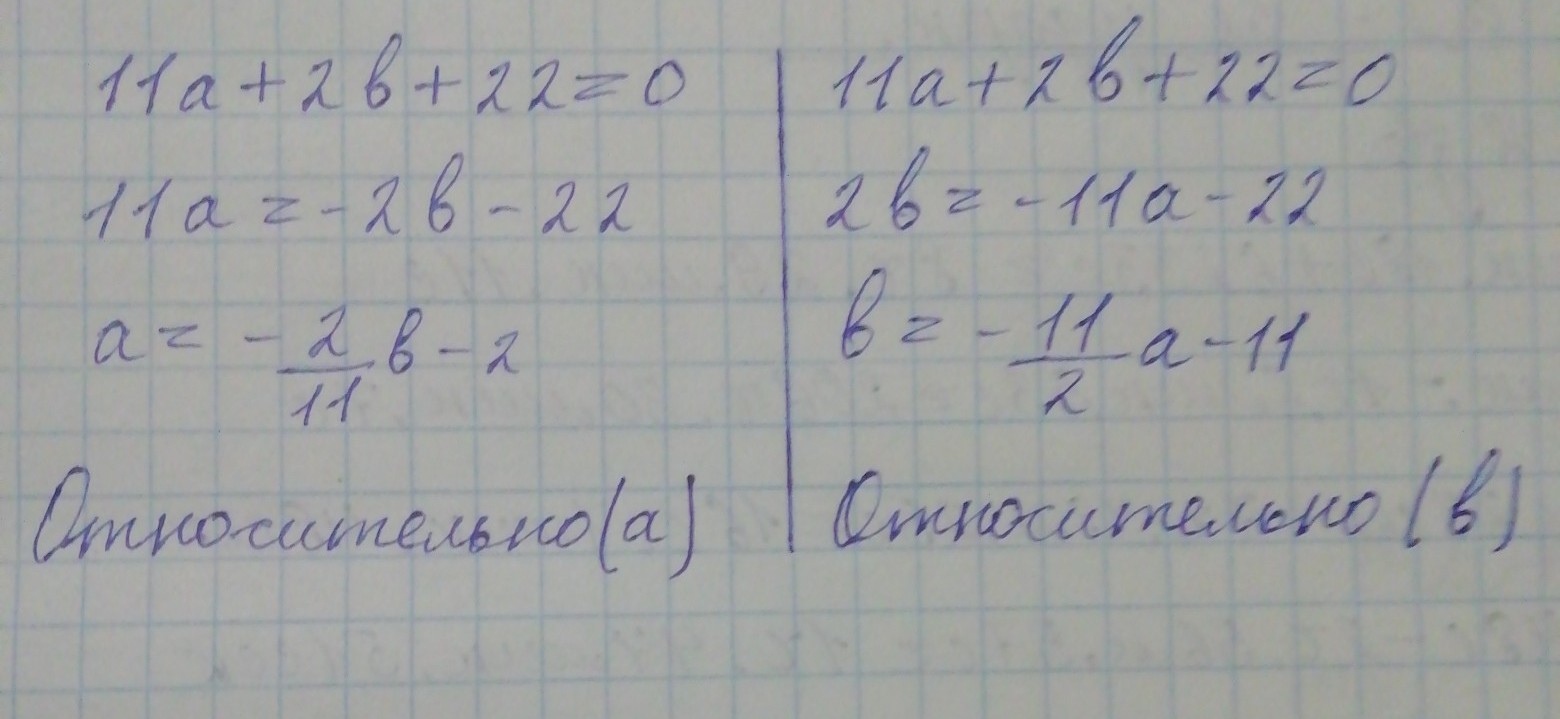 11a + 2b + 22 = 0
11a = -2b - 22
a = - 2/11 b - 2
Относительно (a)
11a + 2b + 22 = 0
2b = -11a - 22
b = - 11/2 a - 11
Относительно (b)